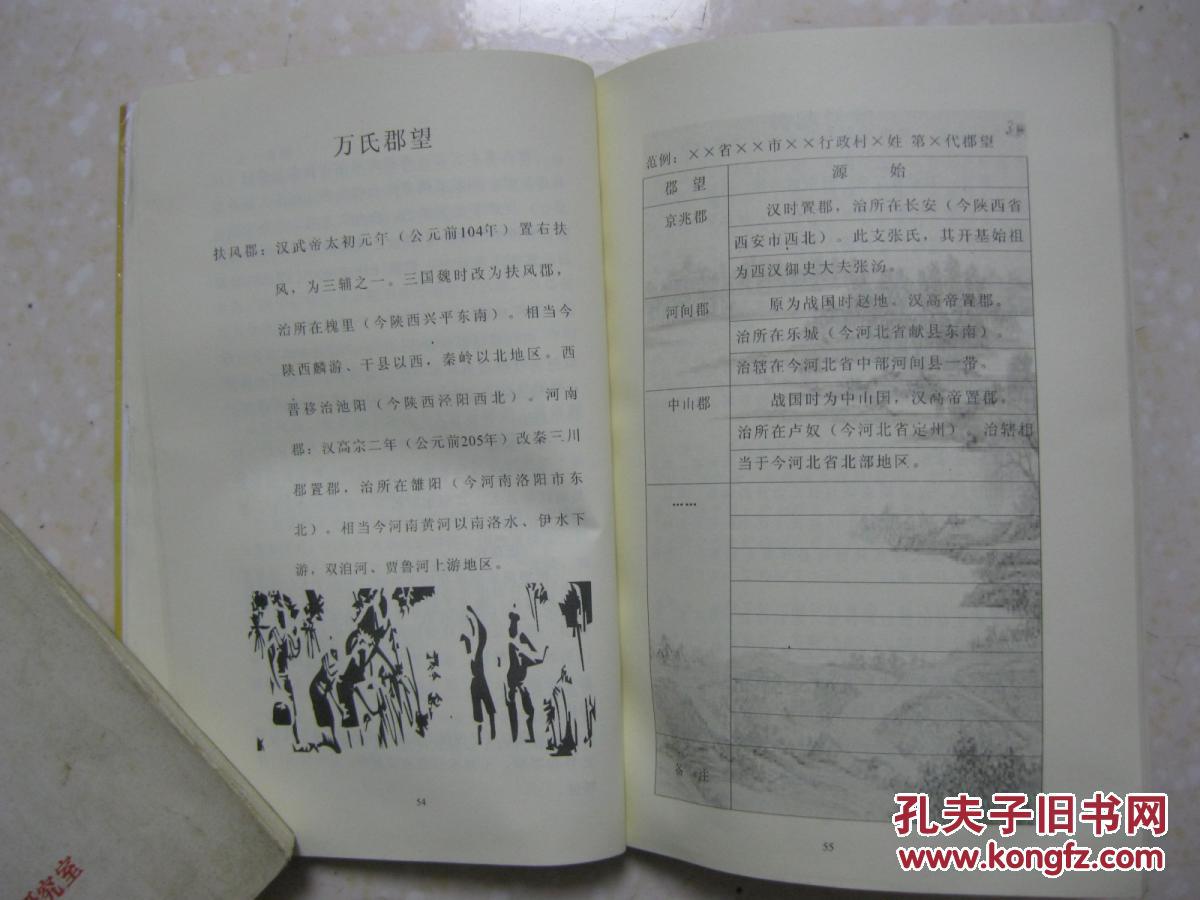 万氏郡望
扶风郡：汉武帝太初元年（公元前104年）置右扶
风，为三辅之一。三国魏时改为扶风郡，
治所在槐里（今陕西兴平东南）。相当今
陕西麟游、干县以西，秦岭以北地区。西
晋移治池阳（今陕西泾阳西北）。河南
郡：汉高宗二年（公元前205年）改秦三川
郡置郡，治所在雒阳（今河南洛阳市东
北）。相当今河南黄河以南洛水、伊水下
游，双洎河、贾鲁河上游地区。
54
范例：××省××市××行政村×姓 第×代郡望
郡 望
源 始
京兆郡
汉时置郡，治所在长安（今陕西省
西安市西北）。此支张氏，其开基始祖
为西汉御史大夫张汤。
河间郡
原为战国时赵地。汉高帝置郡。
治所在乐城（今河北省献县东南）。
治辖在今河北省中部河间县一带。
中山郡
战国时为中山国，汉高帝置郡。
治所在卢奴（今河北省定州）。治辖相
当于今河北省北部地区。
……
备 注
55
究室
孔夫子旧书网
www.kongfz.com